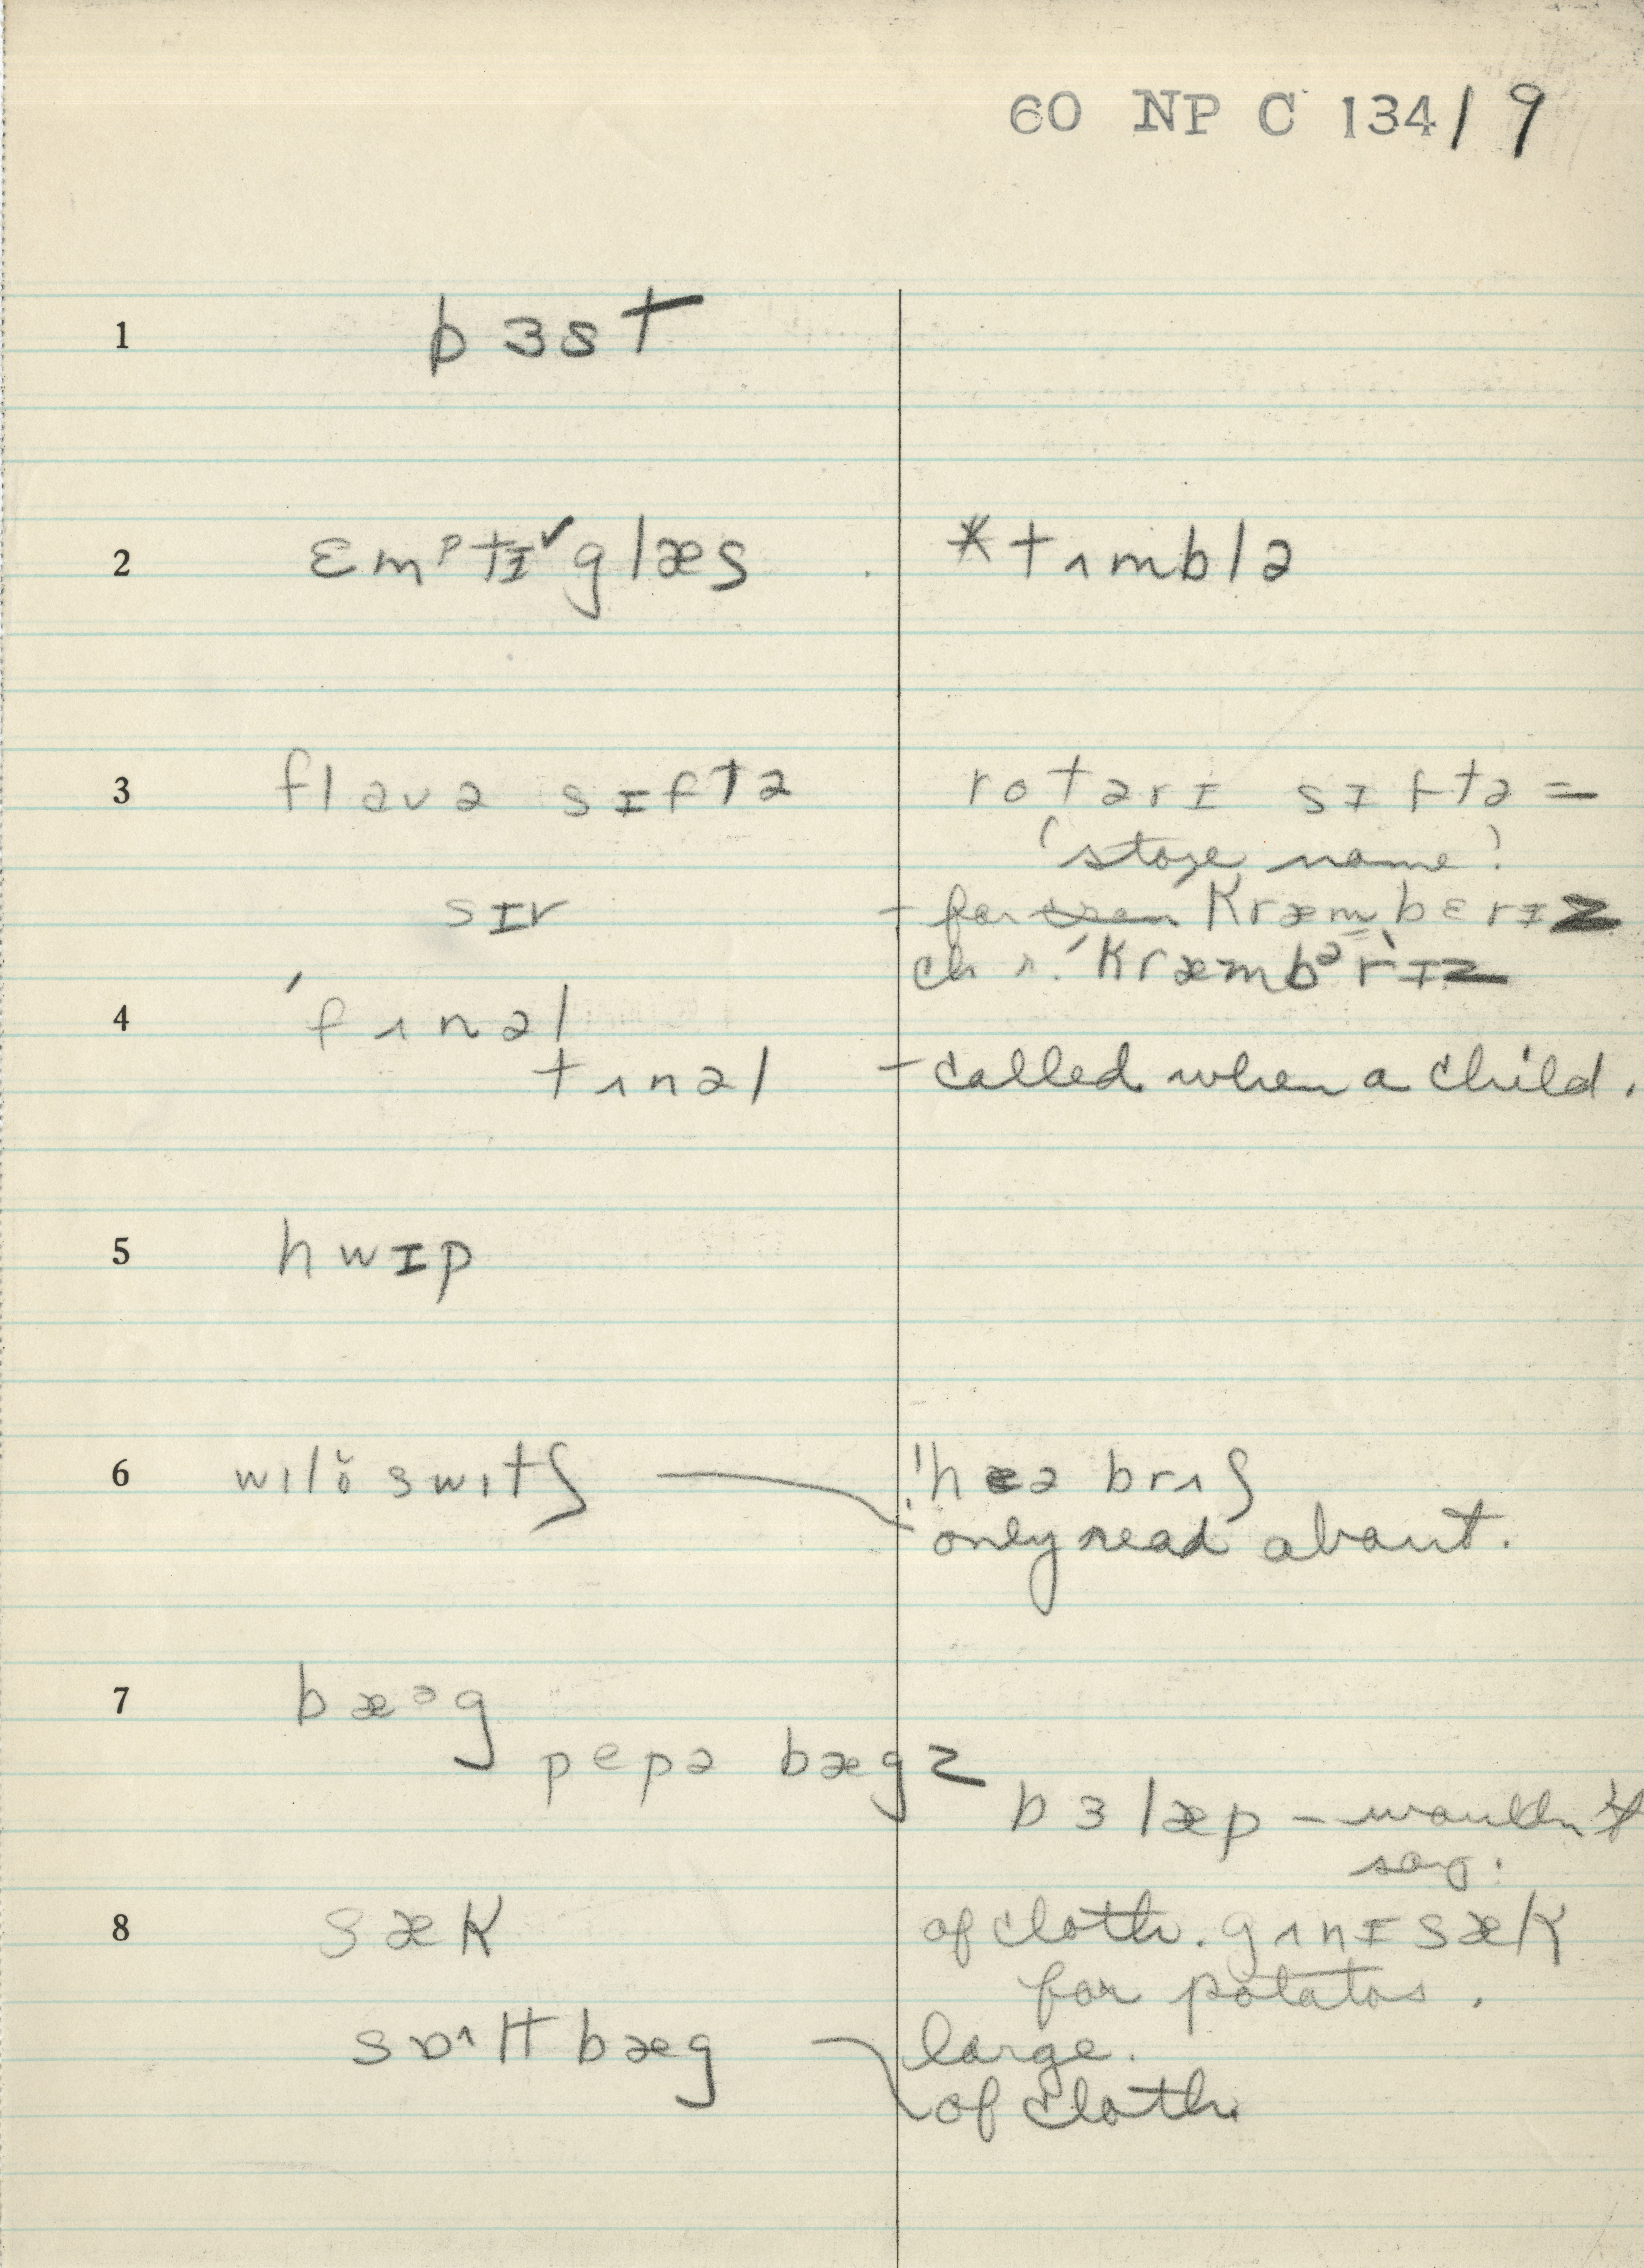 60 NP C 134/9
1 bɜst
2 ɛmᵖtɪ˅glæs *tʌmblə
3 flavə sɪftə rotərɪ sɪftə =
'store name'
sɪv – for kræmbɛrɪz
ch. r. 'kræmbᵊrɪz
4 'fʌnəl
tʌnəl – called when a child.
5 hwɪp
6 wɪlŏ swɪtʃ hɛə brʌʃ
only read about.
7 bæᵊg
pepə bægz
bɜlæp – wouldn't
say.
8 sæk of cloth. gʌnɪ sæk
for potatos.
sɒᶺlt bæg large.
of cloth